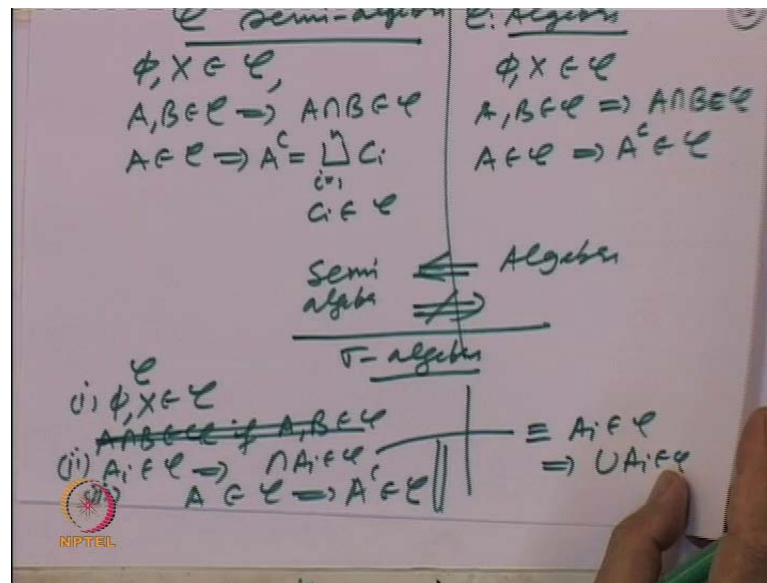 𝒞 Semi-algebra
φ, X ∈ 𝒞,
A, B ∈ 𝒞 ⟹ A∩B ∈ 𝒞
A ∈ 𝒞 ⟹ Aᶜ = ⨆ Cᵢ
n
i=1
Cᵢ ∈ 𝒞
𝒞: Algebra
φ, X ∈ 𝒞
A, B ∈ 𝒞 ⟹ A∩B ∈ 𝒞
A ∈ 𝒞 ⟹ Aᶜ ∈ 𝒞
Semi ⟸ Algebra
algebra ⇏
σ-algebra
𝒞
(i) φ, X ∈ 𝒞
A∩B ∈ 𝒞 if A, B ∈ 𝒞
(ii) Aᵢ ∈ 𝒞 ⟹ ∩Aᵢ ∈ 𝒞 ≡ Aᵢ ∈ 𝒞
⟹ ∪Aᵢ ∈ 𝒞
A ∈ 𝒞 ⟹ Aᶜ ∈ 𝒞
NPTEL